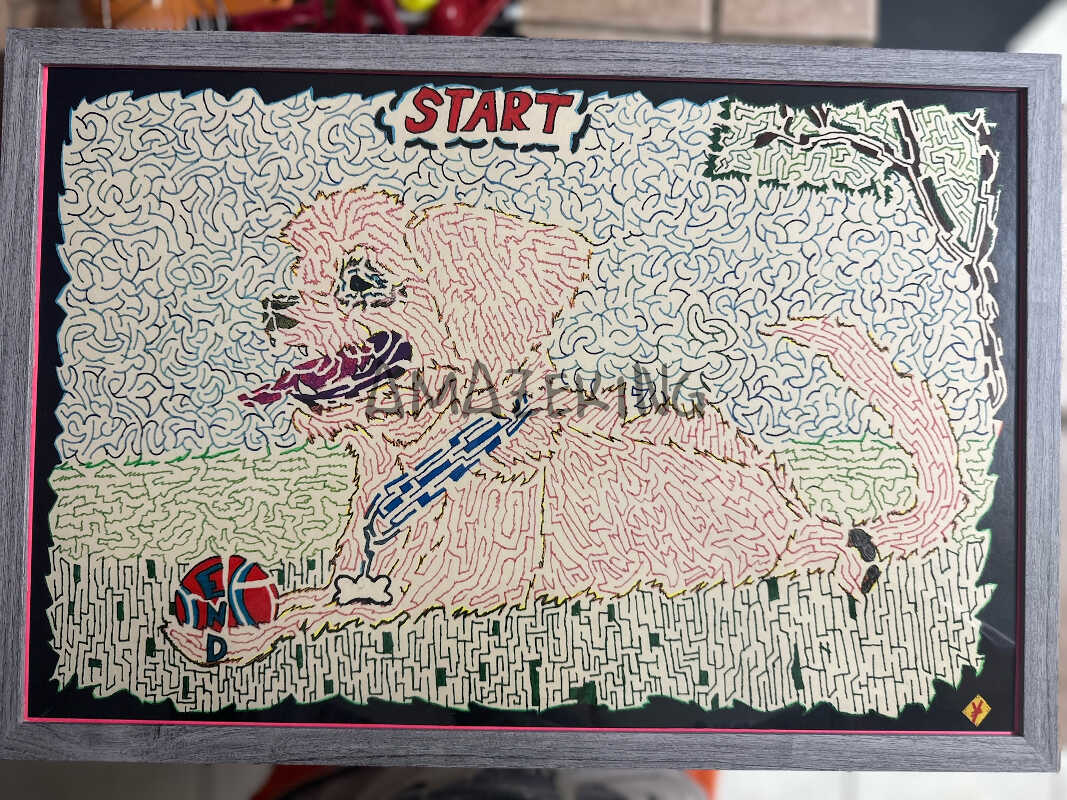 START
AMAZEKING
END